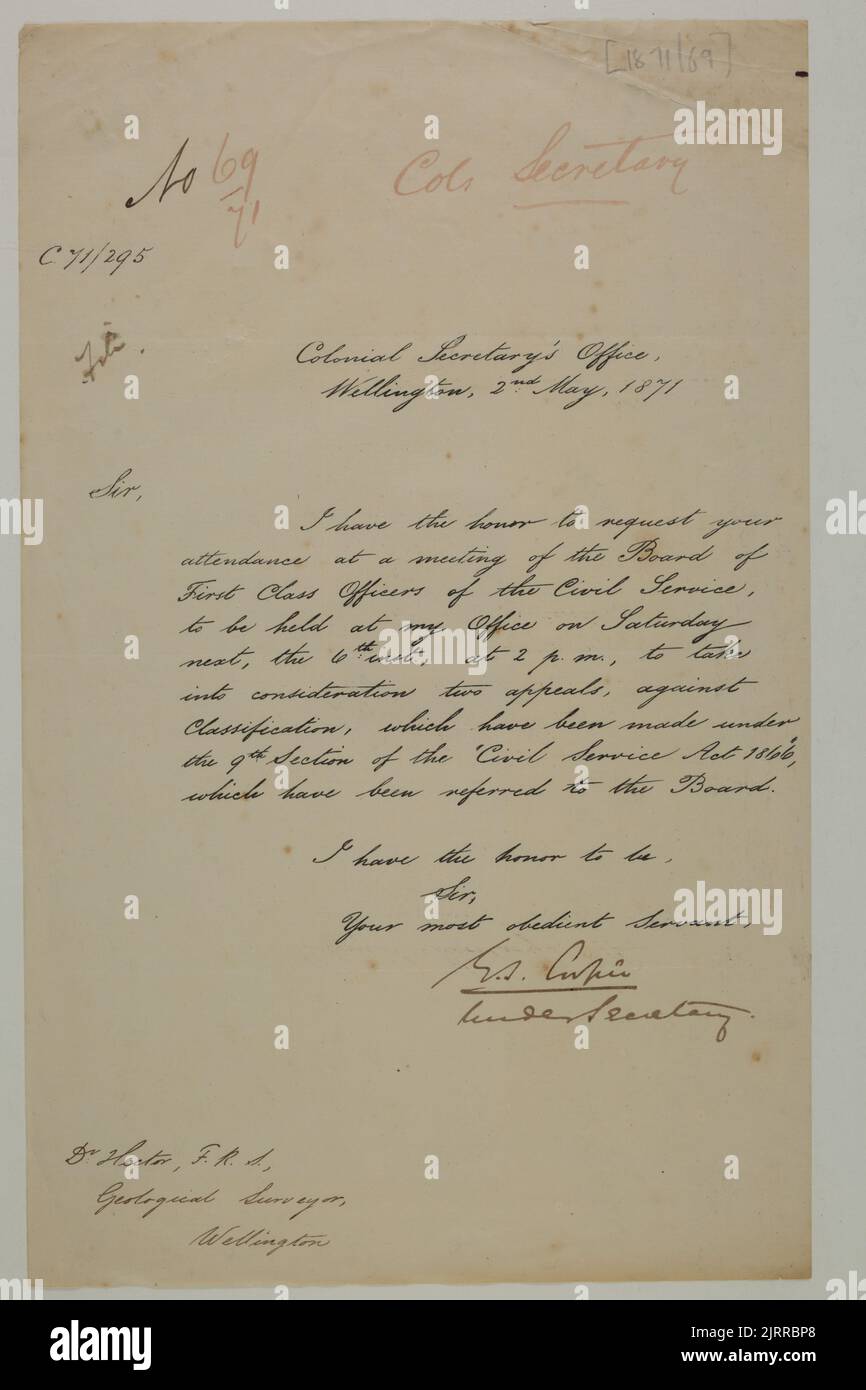 [1871/69]
No 69/71
Col. Secretary
C 71/295
File.
Colonial Secretary's Office,
Wellington, 2nd May, 1871
Sir,
I have the honor to request your
attendance at a meeting of the Board of
First Class Officers of the Civil Service,
to be held at my Office on Saturday
next, the 6th inst., at 2 p.m., to take
into consideration two appeals, against
Classification, which have been made under
the 9th Section of the "Civil Service Act 1866",
which have been referred to the Board.
I have the honor to be,
Sir,
Your most obedient Servant,
Under Secretary.
Dr Hector, F.R.S.,
Geological Surveyor,
Wellington
alamy
Image ID: 2JRRBP8
www.alamy.com